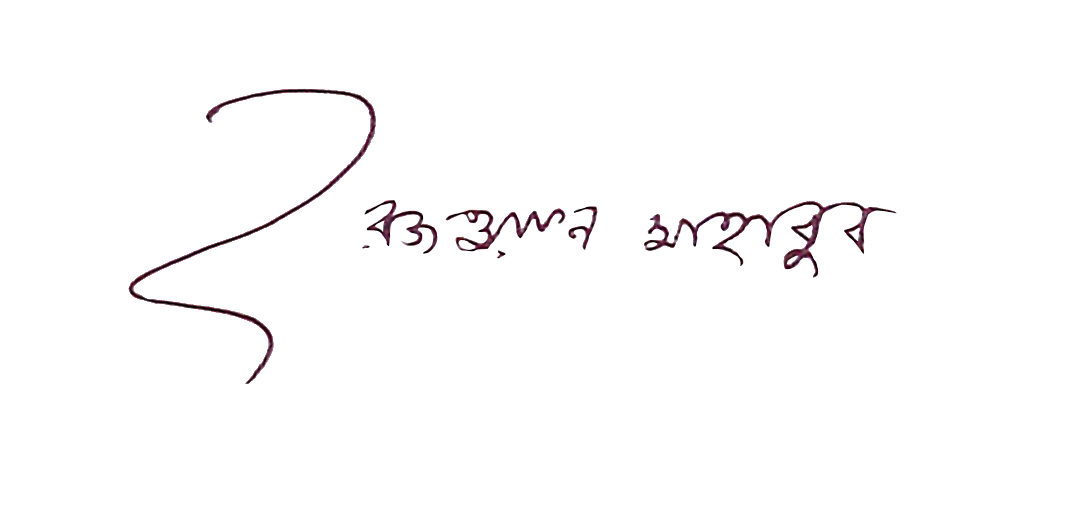 রেজওয়ান মাহাবুব